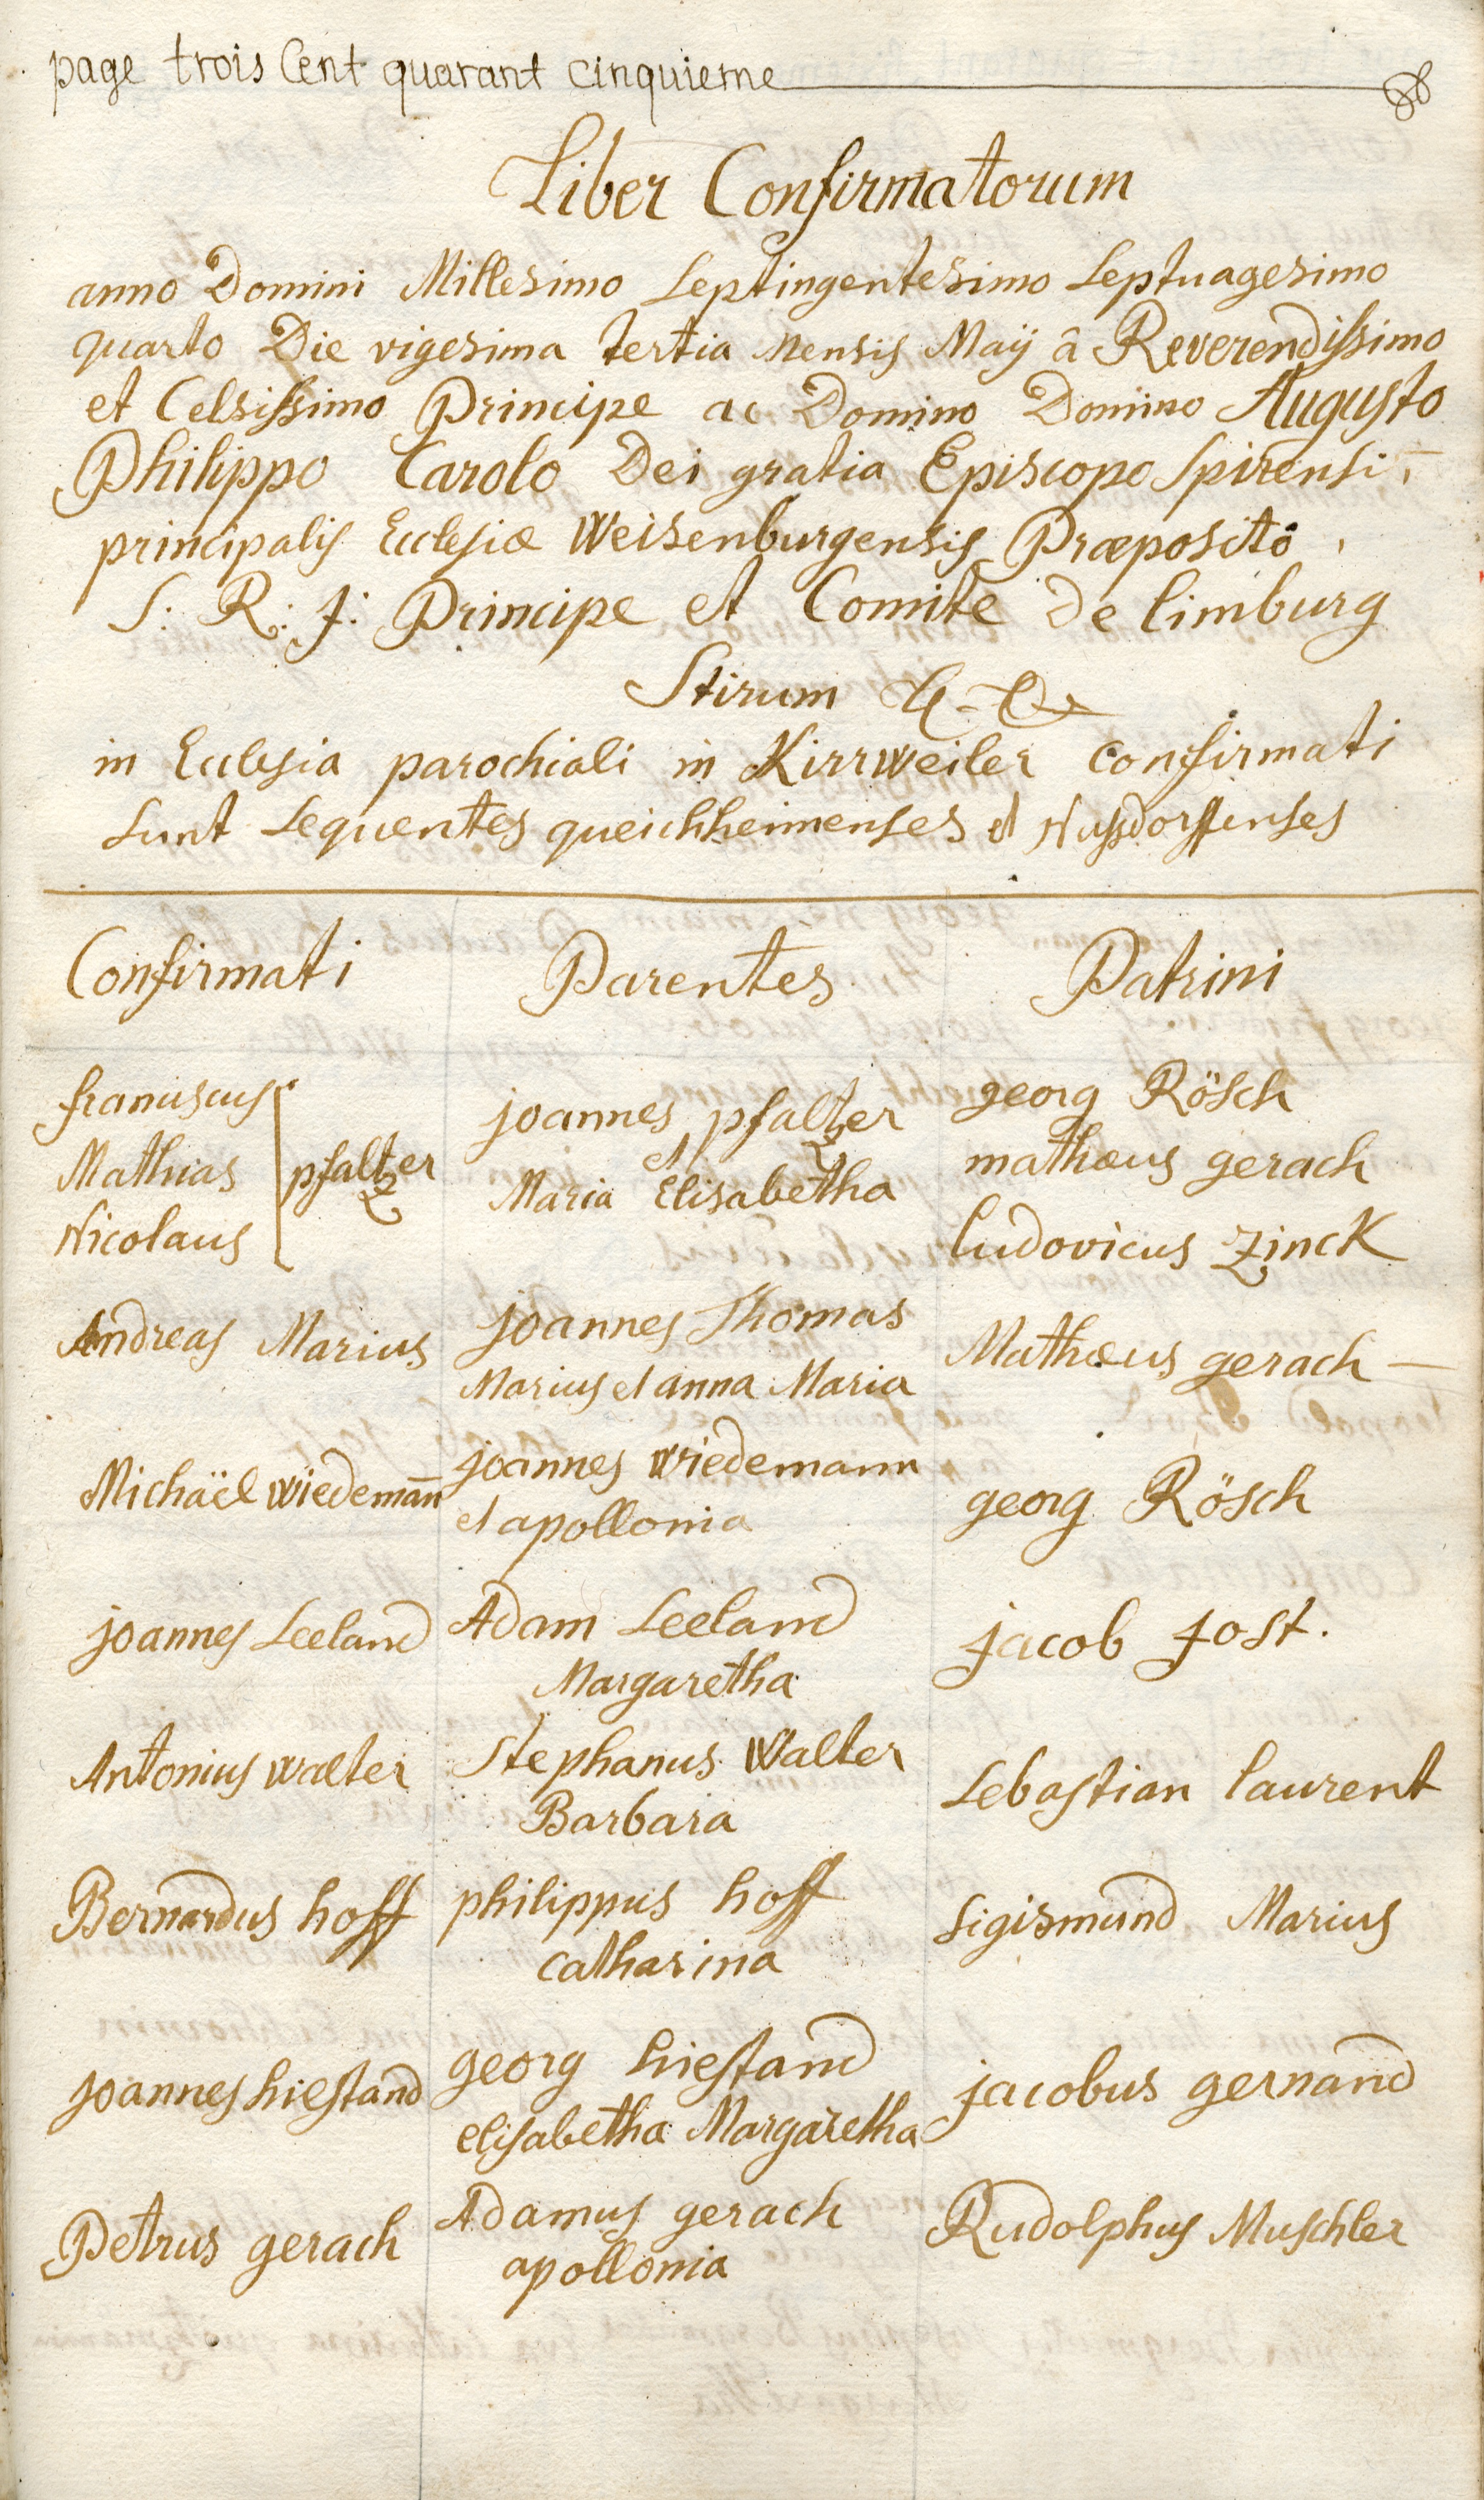 page trois Cent quarant cinquieme
Liber Confirmatorum
anno Domini Millesimo Septingentesimo Septuagesimo
quarto Die vigesima tertia mensis Maÿ â Reverendissimo
et Celsissimo Principe ac Domino Domino Augusto
Philippo Carolo Dei gratia Episcopo Spirensi,
principalis Ecclesiæ Weisenburgensis Præposito,
S: R: J: Principe et Comite de limburg
Stirum
in Ecclesia parochiali in Kirrweiler confirmati
sunt sequentes queichheimenses et Nussdorffenses
Confirmati Parentes Patrini
franciscus joannes pfaltzer georg Rösch
Mathias pfaltzer et mathæus gerach
Nicolaus Maria Elisabetha ludovicus Zinck
Andreas Marius joannes Thomas Mathæus gerach —
Marius et anna Maria
Michaël wiedemañ joannes wiedemann georg Rösch
et apollonia
joannes Seeland Adam Seeland jacob jost.
Margaretha
Antonius walter Stephanus Walter Sebastian laurent
Barbara
Bernardus hoff philippus hoff Sigismund Marius
catharina
joannes hiestand georg hiestand jacobus gernand
elisabetha Margaretha
Petrus gerach Adamus gerach Rudolphus Muschler
apollonia